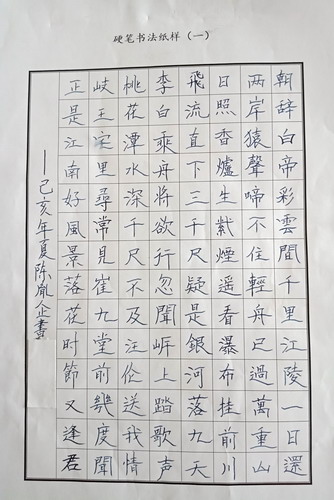 硬笔书法纸样（一）
朝辞白帝彩雲間千里江陵一日還
两岸猿聲啼不住輕舟已過萬重山
日照香爐生紫煙遥看瀑布挂前川
飛流直下三千尺疑是銀河落九天
李白乘舟將欲行忽聞岸上踏歌声
桃花潭水深千尺不及汪伦送我情
岐王宅里尋常見崔九堂前幾度聞
正是江南好風景落花时節又逢君
——己亥年夏陈胤企書